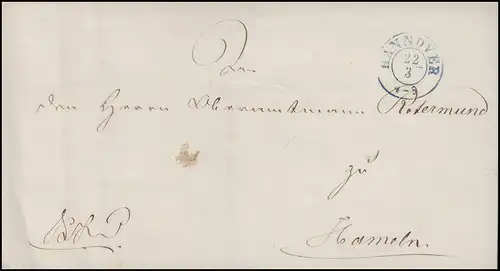 HANNOVER
22
3
4-9
An
den Herrn Oberamtmann Rotermund
zu
Hameln.